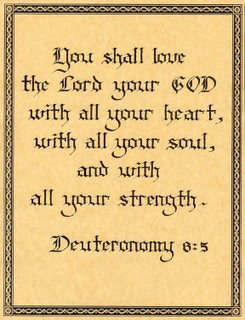 You shall love
the Lord your GOD
with all your heart,
with all your soul,
and with
all your strength.
Deuteronomy 6:5